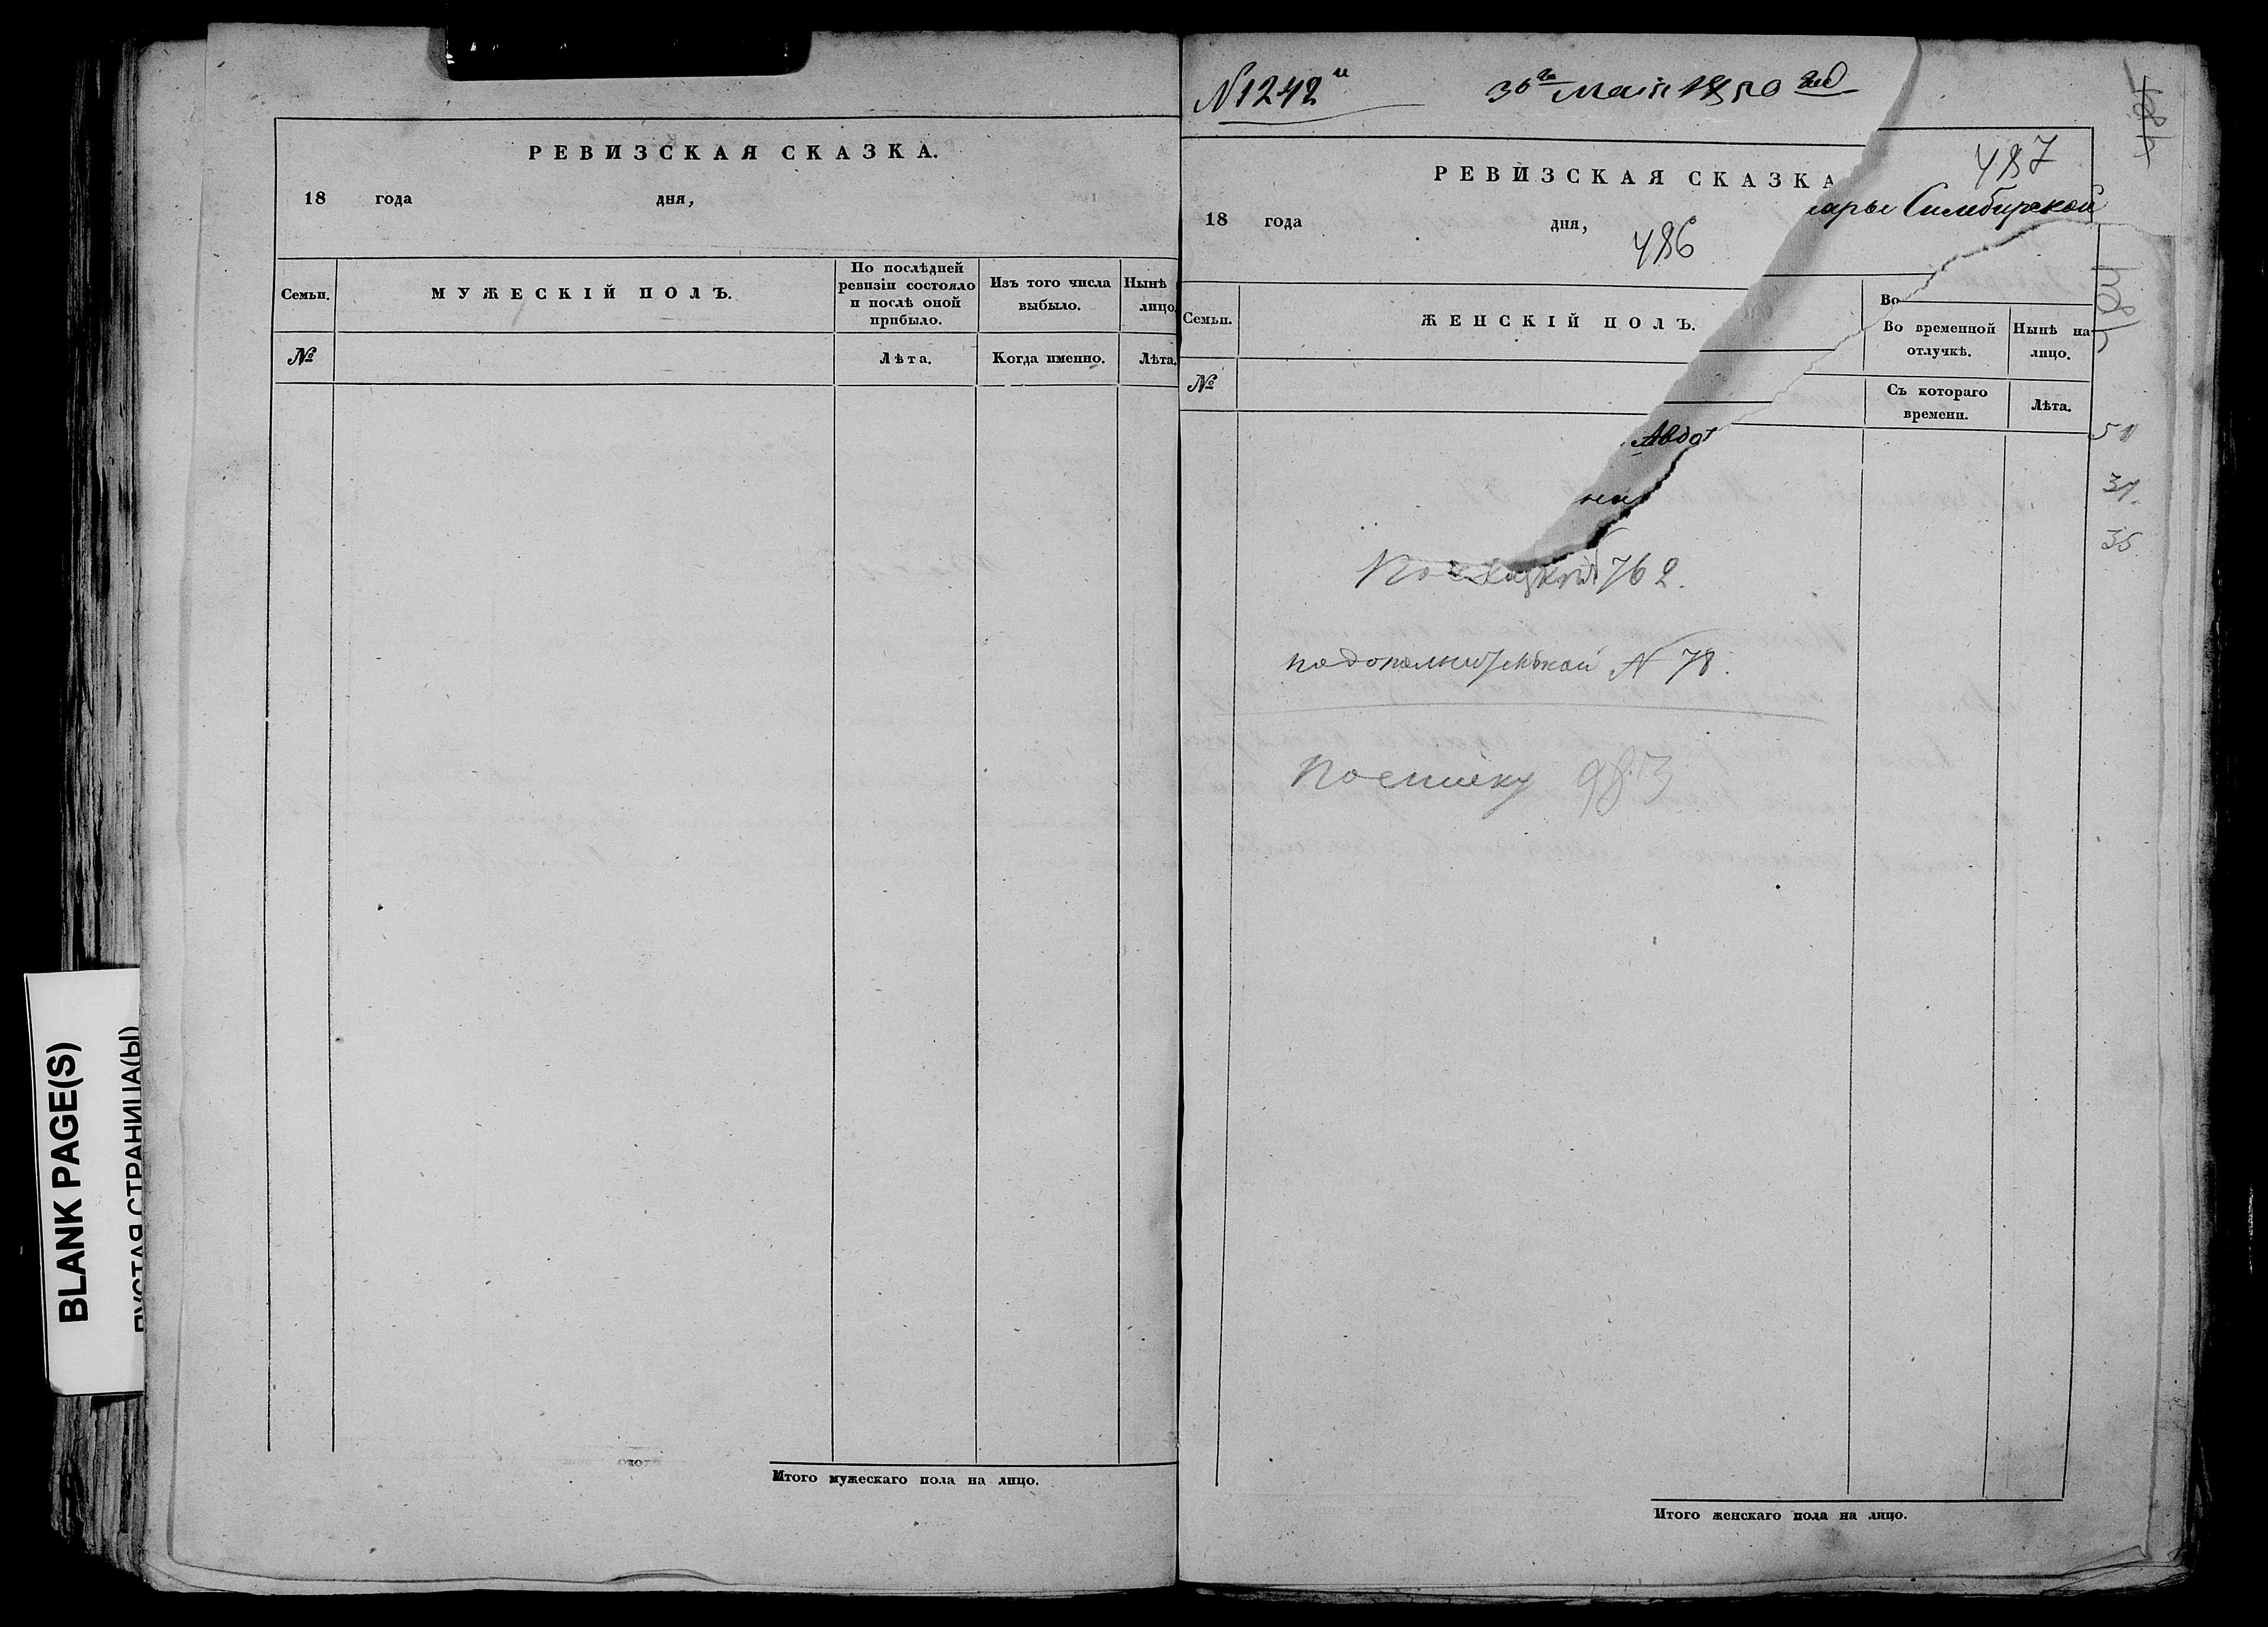 РЕВИЗСКАЯ СКАЗКА.
18 года дня,
Семьи.
МУЖЕСКІЙ ПОЛЪ.
По послѣдней
ревизіи состояло
и послѣ оной
прибыло.
Изъ того числа
выбыло.
Нынѣ
лицо
№
Лѣта.
Когда именно.
Лѣта.
Итого мужескаго пола на лицо.
BLANK PAGE(S)
ПУСТАЯ СТРАНИЦА(Ы)
N 1242
30го Маія 1850
РЕВИЗСКАЯ СКАЗКА
487
Симбирской
18 года дня,
486
Семьи.
ЖЕНСКІЙ ПОЛЪ.
Во
Во временной
отлучкѣ.
Нынѣ на
лицо.
№
Съ котораго
времени.
Лѣта.
Авдот
По сказкѣ 762.
по дополнительной N 78.
По списку 983
Итого женскаго пола на лицо.